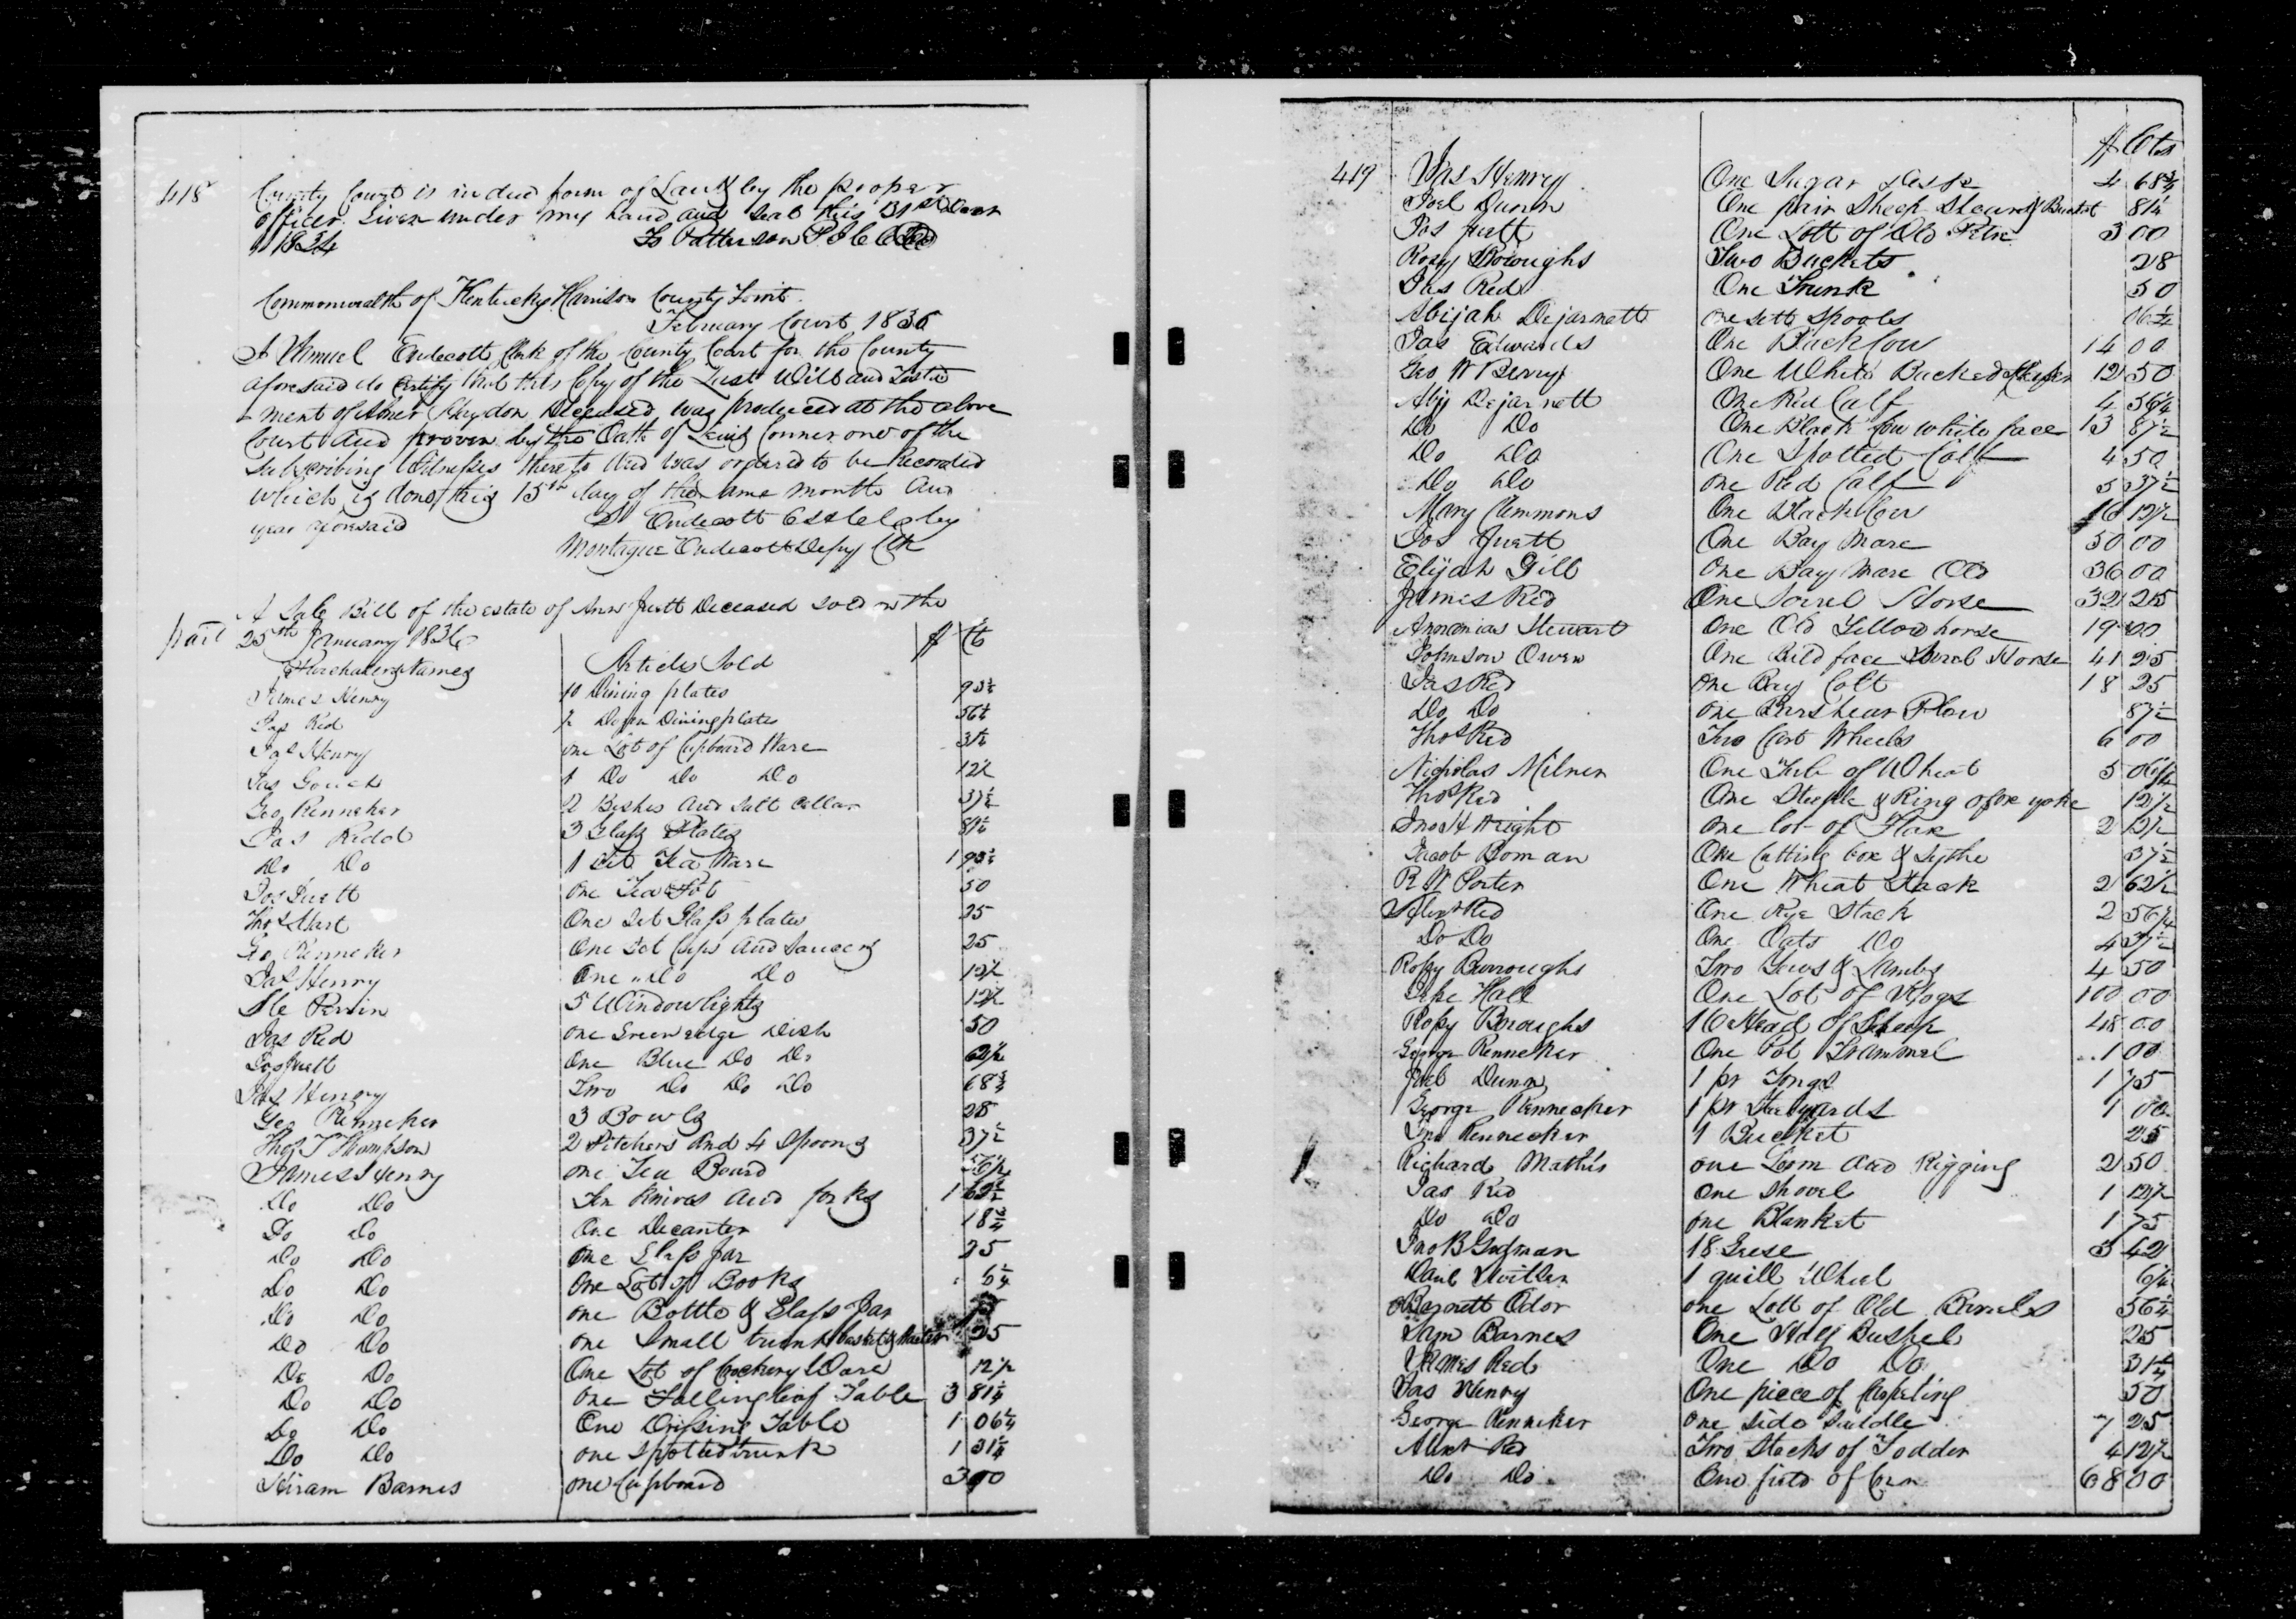 418
County Court is in due form of Law & by the proper
officer Given under my hand and Seal this 31st Decr
1834 Patterson
Commonwealth of Kentucky Harrison County Towit.
February Court 1836
I Samuel Endecott Clerk of the County Court for the County
aforesaid do Certify that this Copy of the Last Will and Testa
-ment of Abner Haydon Deceased was produced at the above
Court and proven by the Oath of Lewis Conner one of the
Subscribing Witnesses thereto and was ordered to be Recorded
which is done this 15th day of the same month and
year aforesaid S Endecott by
Montague Endecott Depy Clk
A Sale Bill of the estate of Ann Juett Deceased sold on the
part 25th January 1836
Purchasers Names Articles Sold $ Cts
James Henry 10 Dining plates 93¾
Jas Red ½ Dozen Dining plates 56¼
Jas Henry one Lot of Cupboard Ware 31¼
Jas Gouch 1 Do Do Do 12½
Geo Renneker 2 Dishes and Salt Cellar 37½
Jas Redd 3 Glass Plates 81¼
Do Do 1 Set Tea Ware 1 93¾
Jos Juett one Tea Pot 50
Thos Hart One Set Glass plates 25
Go Renneker One Set Cups and Saucers 25
Jas Henry One Do Do 12½
Perrin 5 Window lights 12½
Jas Red one Green edge Dish 50
Jos Juett One Blue Do Do 62½
Jas Henry Two Do Do Do 68¾
Geo Renneker 3 Bowls 28
Thos T Thompson 2 Pitchers and 4 Spoons 37½
James Henry one Tea Board 56¼
Do Do Ten Knives and forks 1 62½
Do Do One Decanter 18¾
Do Do one Glass Jar 25
Do Do One Lot of Books 6¼
Do Do one Bottle & Glass Jar
Do Do one Small trunk basket & 25
Do Do One Lot of Crockery Ware 12½
Do Do one Falling leaf Table 3 81¼
Do Do One Dressing Table 1 06¼
Do Do one Spotted trunk 1 31¼
Hiram Barnes one Cupboard 3 00
$ Cts
419 Jas Henry One Sugar Desk 4 68¾
Joel Dunn One pair Sheep Shears & Bucket 81¼
Jos Juett One Lott of Old 3 00
Rosy Boroughs Two Buckets 28
Jas Red One Trunk 50
Abijah Dejarnett one sett Spools 06¼
Jas Edwards One Cow 14 00
Geo W Berry One White Backed Heifer 12 50
Abij Dejarnett One Red Calf 4 56¼
Do Do One Black Cow white face 13 87½
Do Do One Spotted Calf 4 50
Do Do one Red Calf 5 37½
Mary Clemmons One Black Cow 16 12½
Jos Juett One Bay Mare 50 00
Elijah Gill one Bay Mare Old 36 00
James Red One Sorrel Horse 32 25
Stewart One Old Yellow horse 19 00
Johnson Owen One Bald face Sorrel Horse 41 25
Jas Red one Bay Colt 18 25
Do Do one Barshear Plow 87½
Thos Red Two Cart Wheels 6 00
Nicholas Milner One Tub of Wheat 5 06¼
Thos Red One Steeple & Ring of ox yoke 12½
Jno H Wright one lot of Flax 2 12½
Jacob Boman One Cutting box & Sythe 37½
R W Porter One Wheat Stack 2 62½
Alexr Red One Rye Stack 2 56¼
Do Do One Oats Do 4 37½
Rosy Burroughs Two Yews & Lambs 4 50
Hall One Lot of Hogs 100 00
Rosy Boroughs 16 Head of Sheep 48 00
George Renneker One Pot Trammel 1 00
Joel Dunn 1 pr Tongs 1 75
George Rennecker 1 pr Steelyards 1 00
Geo Rennecker 1 Bucket 25
Richard Mathis one Loom and Rigging 2 50
Jas Red one Shovel 1 12½
Do Do one Blanket 1 75
Jno B 18 Geese 3 42
1 quill Wheel 6¼
Barnett Odor one Lott of Old Barrels 56¼
Sam Barnes One Half Bushel 25
James Red One Do Do 31¼
Jas Henry One piece of Carpeting 50
George Renneker one Side Saddle 7 25
Alexr Red Two Stacks of Fodder 4 12½
Do Do One field of Corn 68 00